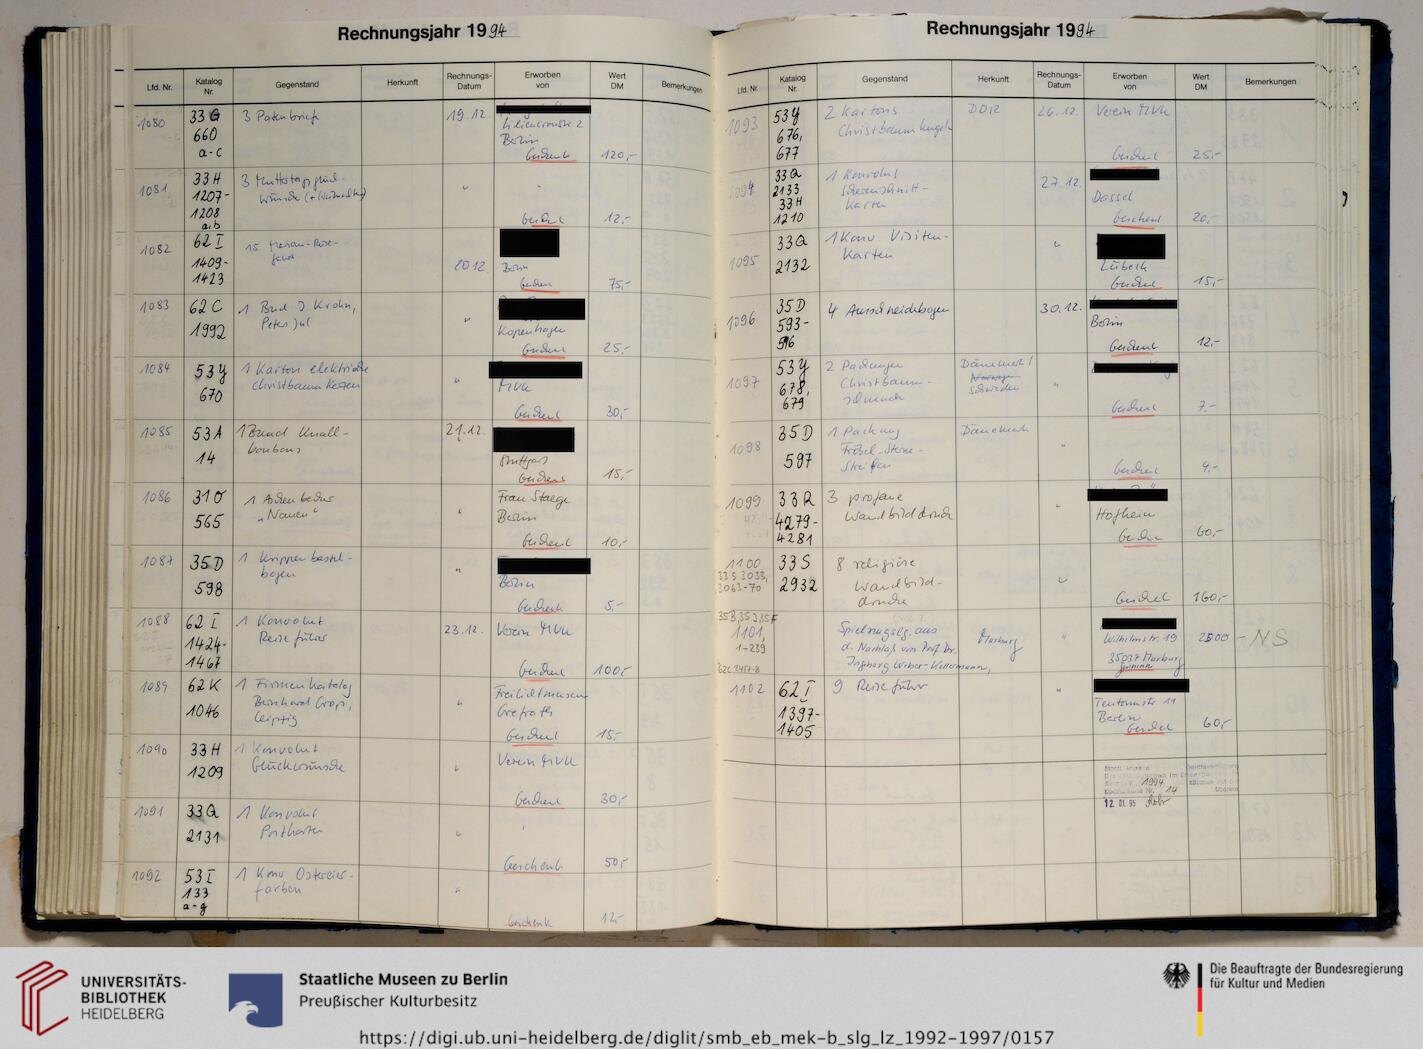 Rechnungsjahr 1994
Lfd. Nr.
Katalog Nr.
Gegenstand
Herkunft
Rechnungs-Datum
Erworben von
Wert DM
Bemerkungen
1080
33 G
660
a-c
3 Patenbriefe
19.12.
Liliencronstr 2
Berlin
Geschenk
120,-
1081
33 H
1207-
1208
a,b
3 Muttertagsglück-
wünsche (+ Weihnachten)
"
"
Geschenk
12,-
1082
62 I
1409-
1423
15
20.12.
Berlin
Geschenk
75,-
1083
62 C
1992
1 Bund J. Krohn,
Peters Jul
"
Kopenhagen
Geschenk
25,-
1084
53 y
670
1 Karton elektrische
Christbaumkerzen
"
MVK
Geschenk
30,-
1085
53 A
14
1 Bund Knall-
bonbons
21.12.
Stuttgart
Geschenk
15,-
1086
31 O
565
1
"Nauen"
"
Frau Staege
Berlin
Geschenk
10,-
1087
35 D
598
1 Krippenbastel-
bogen
"
Berlin
Geschenk
5,-
1088
62 I
1424-
1467
1 Konvolut
Reiseführer
23.12.
Verein MVK
Geschenk
100,-
1089
62 K
1046
1 Firmenkatalog
Bernhard
Leipzig
"
Freilichtmuseum
Grefrath
Geschenk
15,-
1090
33 H
1209
1 Konvolut
Glückwünsche
"
Verein MVK
Geschenk
30,-
1091
33 Q
2131
1 Konvolut
Postkarten
"
"
Geschenk
50,-
1092
53 I
133
a-g
1 Konv. Ostereier-
farben
"
Geschenk
12,-
Rechnungsjahr 1994
Lfd. Nr.
Katalog Nr.
Gegenstand
Herkunft
Rechnungs-Datum
Erworben von
Wert DM
Bemerkungen
1093
53 y
676,
677
2 Kartons
Christbaumkugeln
DDR
26.12.
Verein MVK
Geschenk
25,-
1094
33 Q
2133
33 H
1210
1 Konvolut
Scherenschnitt-
Karten
27.12.
Dassel
Geschenk
20,-
1095
33 Q
2132
1 Konv. Visiten-
karten
"
Lübeck
Geschenk
15,-
1096
35 D
593-
596
4 Ausschneidebogen
30.12.
Berlin
Geschenk
12,-
1097
53 y
678,
679
2 Packungen
Christbaum-
schmuck
Dänemark/
Norwegen
Schweden
"
Geschenk
7,-
1098
35 D
597
1 Packung
Fröbel-Sterne-
Streifen
Dänemark
"
Geschenk
4,-
1099
33 R
4279-
4281
3 profane
Wandbilddrucke
"
Hofheim
Geschenk
60,-
1100
33 S 3033,
3063-70
33 S
2932
8 religiöse
Wandbild-
drucke
"
Geschenk
160,-
1101,
1-239
62C 2417-8
Spielzeugslg. aus
d. Nachlaß von Prof. Dr.
Ingeborg Weber-Kellermann,
Marburg
"
Wilhelmstr. 19
35037 Marburg
-NS
1102
62 I
1397-
1405
9 Reiseführer
"
Teutonenstr. 11
Berlin
Geschenk
60,-
1994
14
12. 01. 95
UNIVERSITÄTS-
BIBLIOTHEK
HEIDELBERG
Staatliche Museen zu Berlin
Preußischer Kulturbesitz
Die Beauftragte der Bundesregierung
für Kultur und Medien
https://digi.ub.uni-heidelberg.de/diglit/smb_eb_mek-b_slg_lz_1992-1997/0157